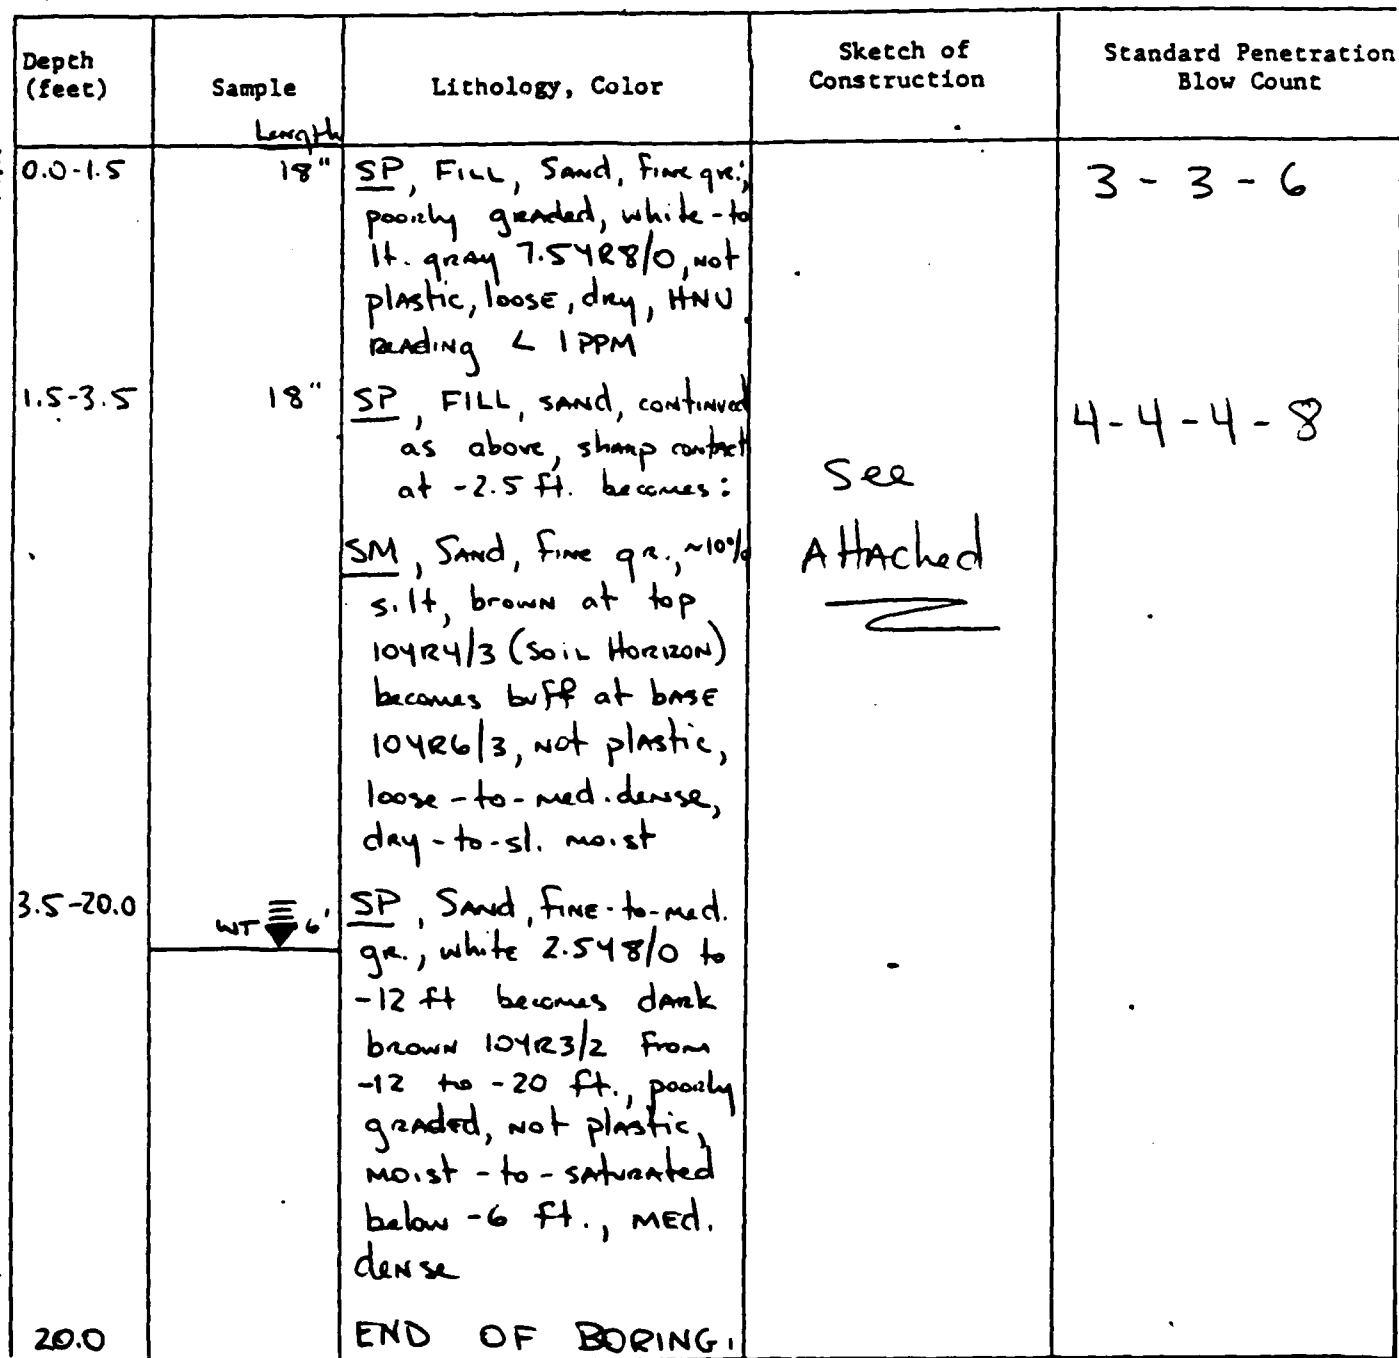 Depth
(feet)
Sample
Length
Lithology, Color
Sketch of
Construction
Standard Penetration
Blow Count
0.0-1.5
18"
SP, FILL, SAND, FINE gr.,
poorly graded, white-to
lt. gray 7.5YR8/0, not
plastic, loose, dry, HNU
READING < 1 PPM
3 - 3 - 6
1.5-3.5
18"
SP, FILL, SAND, continued
as above, sharp contact
at -2.5 ft. becomes:
4 - 4 - 4 - 8
SM, SAND, FINE gr., ~10%
silt, brown at top
10YR4/3 (SOIL HORIZON)
becomes buff at BASE
10YR6/3, not plastic,
loose-to-med. dense,
dry-to-sl. moist
See
Attached
3.5-20.0
WT 6'
SP, SAND, FINE-to-med.
gr., white 2.5Y8/0 to
-12 ft becomes dark
brown 10YR3/2 from
-12 to -20 ft., poorly
graded, not plastic,
moist-to-saturated
below -6 ft., MED.
dense
20.0
END OF BORING.